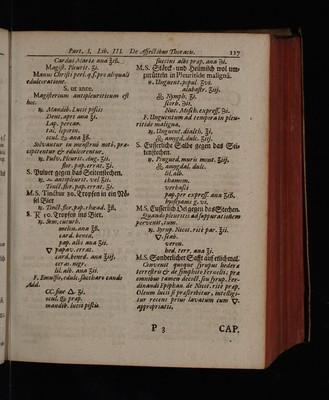 Part. I. Lib. III. De Affectibus Thoracis. 117
Cardui Mariæ ana ʒiß.
Magist. Pleurit. ʒi.
Manus Christi perl. q. s. pro aliquali
edulcoratione.
S. ut ante.
Magisterium antipleuriticum est
hoc.
℞. Mandib. Lucii piscis
Dent. apri ana ʒi.
Lap. percar.
tal. leporin.
Solvantur in menstruo noto, præ-
cipitentur & edulcorentur.
℞. Pulv. Pleurit. Aug. ʒii.
flor. pap. errat. ʒi.
S. Pulver gegen das Seitenstechen.
Tinct. flor. pap. errat. ʒi.
M.S. Tinctur 30. Tropfen in ein Nö-
sel Bier
℞. Tinct. flor. pap. rhœad. ℥ß.
S. 10. Tropfen ins Bier.
℞. Sem. cucurb.
melon. ana ℥ß.
card. bened.
pap. albi ana ʒii.
papav. errat.
card. bened. ana ℥iij.
ceras. nigr.
lil. alb. ana ℥ii.
F. Emulsio, edulc. saccharo cando
Add.
mandib. lucii piscis
succini albi præp. ana ʒi.
M.S. Stärck- und Heimlich wol um-
zurütteln in Pleuritide malignâ.
alabastr. ℥iij.
Nymph. ℥i.
Nuc. Mosch. express. ℥i.
F. Unguentum ad tempora in pleu-
ritide maligna.
℞. Unguent. dialth. ℥i.
amygd. dulc. ℥iij.
S. Eusserliche Salbe gegen das Sei-
tenstechen.
amygdal. dulc.
lil. alb.
chamom.
verbasci
pap. per express. ana ℥iß.
M.S. Eusserlich Oel gegen das Stechen.
Quando pleuritis ad suppurationem
pervenit, sum.
℞. Syrup. Nicot. ritè par. ℥ii.
scab.
veron.
hed. terr. ana ℥i.
M.S. Sonderlicher Safft auff etlichmal.
Convenit quoque syrupus hederæ
terrestris & de symphito Fernelii, præ
omnibus tamen decoct. seu syrup. Fer-
dinandi Epiphan. de Nicot. ritè præp.
Oleum lucii si præscribitur, intelligi-
tur recens prius lavatum cum
appropriatis,
P 3 CAP.